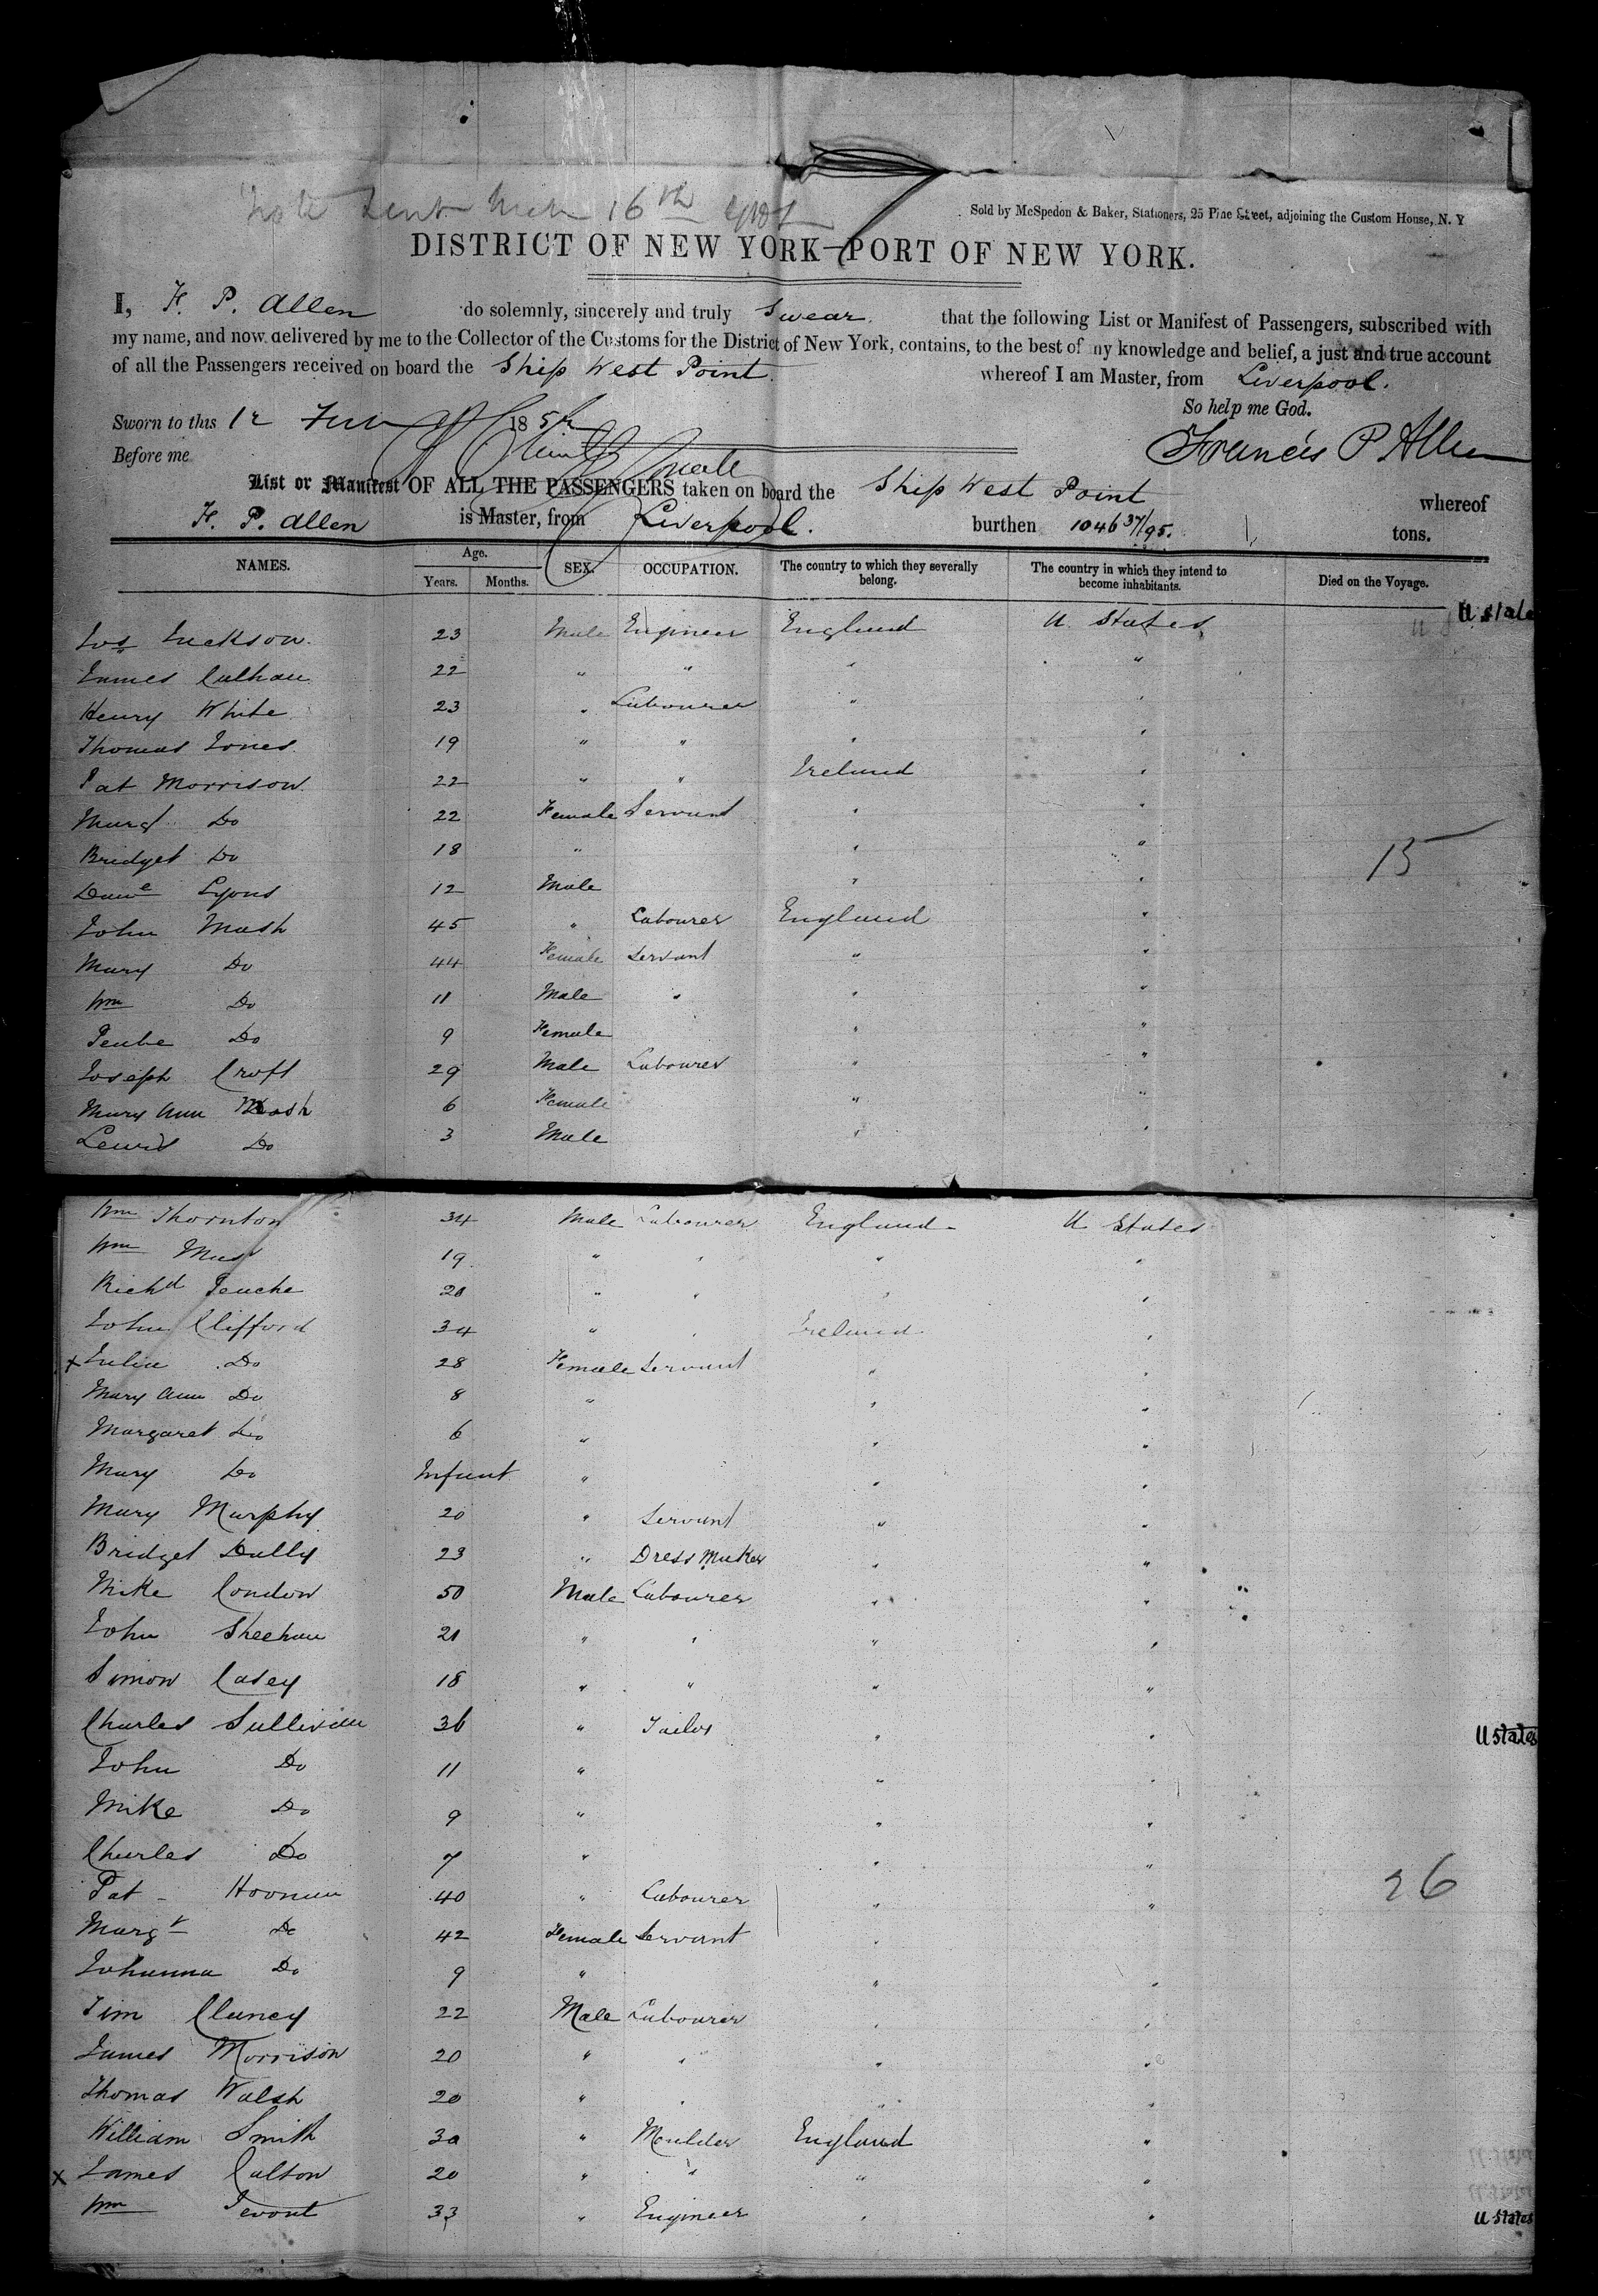 16th
Sold by McSpedon & Baker, Stationers, 25 Pine Street, adjoining the Custom House, N. Y
DISTRICT OF NEW YORK—PORT OF NEW YORK.
I, F. P. Allen do solemnly, sincerely and truly Swear that the following List or Manifest of Passengers, subscribed with
my name, and now delivered by me to the Collector of the Customs for the District of New York, contains, to the best of my knowledge and belief, a just and true account
of all the Passengers received on board the Ship West Point. whereof I am Master, from Liverpool.
So help me God.
Sworn to this 12 185
Francis P Allen
Before me
List or Manifest OF ALL THE PASSENGERS taken on board the Ship West Point whereof
F. P. Allen is Master, from Liverpool. burthen 1046 37/95. tons.
NAMES. Age. Years. Months. SEX. OCCUPATION. The country to which they severally belong. The country in which they intend to become inhabitants. Died on the Voyage.
U State
Jos Jackson. 23 Male Engineer England U. States
James Calhau 22 " " " "
Henry White 23 " Labourer " "
Thomas Jones. 19 " " " "
Pat Morrison. 22 " " Ireland "
Margt Do 22 Female Servant " "
Bridget Do 18 " " "
Lyons 12 Male " "
John Mash 45 " Labourer England "
Mary Do 44 Female Servant " "
Wm Do 11 Male " " "
Do 9 Female " "
Joseph Croft 29 Male Labourer " "
Mary Ann Mash 6 Female " "
Lewis Do 3 Male " "
15
Wm Thornton 34 Male Labourer England U States
Wm 19 " " " "
Richd Peache 20 " " " "
John Clifford 34 " " Ireland "
x Julia Do 28 Female Servant " "
Mary Ann Do 8 " " "
Margaret Do 6 " " "
Mary Do Infant " " "
Mary Murphy 20 " Servant " "
Bridget Dally 23 " Dress Maker " "
Mike Condon 50 Male Labourer " "
John Sheehan 21 " " " "
Simon Casey 18 " " " "
Charles Sullivan 36 " Tailor " "
U States
John Do 11 " " "
Mike Do 9 " " "
Charles Do 7 " " "
Pat Hoonan 40 " Labourer " "
26
Margt Do 42 Female Servant " "
Johanna Do 9 " " "
Tim Clancy 22 Male Labourer " "
James Morrison 20 " " " "
Thomas Walsh 20 " " " "
William Smith 30 " Moulder England "
x James Calton 20 " " " "
Wm 33 " Engineer " "
U States